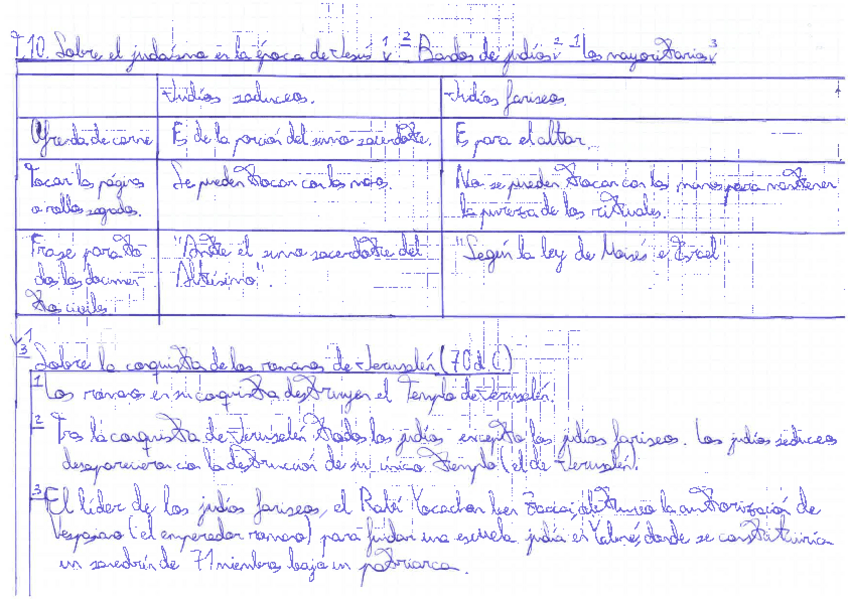 T.10. Sobre el judaísmo en la época de Jesús
Bandos de judíos
los mayoritarios
Judíos saduceos.
Judíos fariseos.
Ofrenda de carne
Es de la porción del sumo sacerdote.
Es para el altar.
Tocar las páginas
o rollos sagrados.
Se pueden tocar con las manos.
No se pueden tocar con las manos para mantener
la pureza de los rituales.
Frase para to-
dos los documen-
tos civiles
"Ante el sumo sacerdote del
Altísimo".
"Según la ley de Moisés e Israel"
3 Sobre la conquista de los romanos de Jerusalén (70 d.C)
1 Los romanos en su conquista destruyen el Templo de Jerusalén.
2 Tras la conquista de Jerusalén todos los judíos excepto los judíos fariseos. Los judíos seduceos
desaparecieron con la destrucción de su único Templo (el de Jerusalén).
3 El líder de los judíos fariseos, el Rabí ben Zaccai, obtuvo la authorización de
Vespasiano (el emperador romano) para fundar una escuela judía en donde se constituiría
un sanedrín de 71 miembros bajo un patriarca.